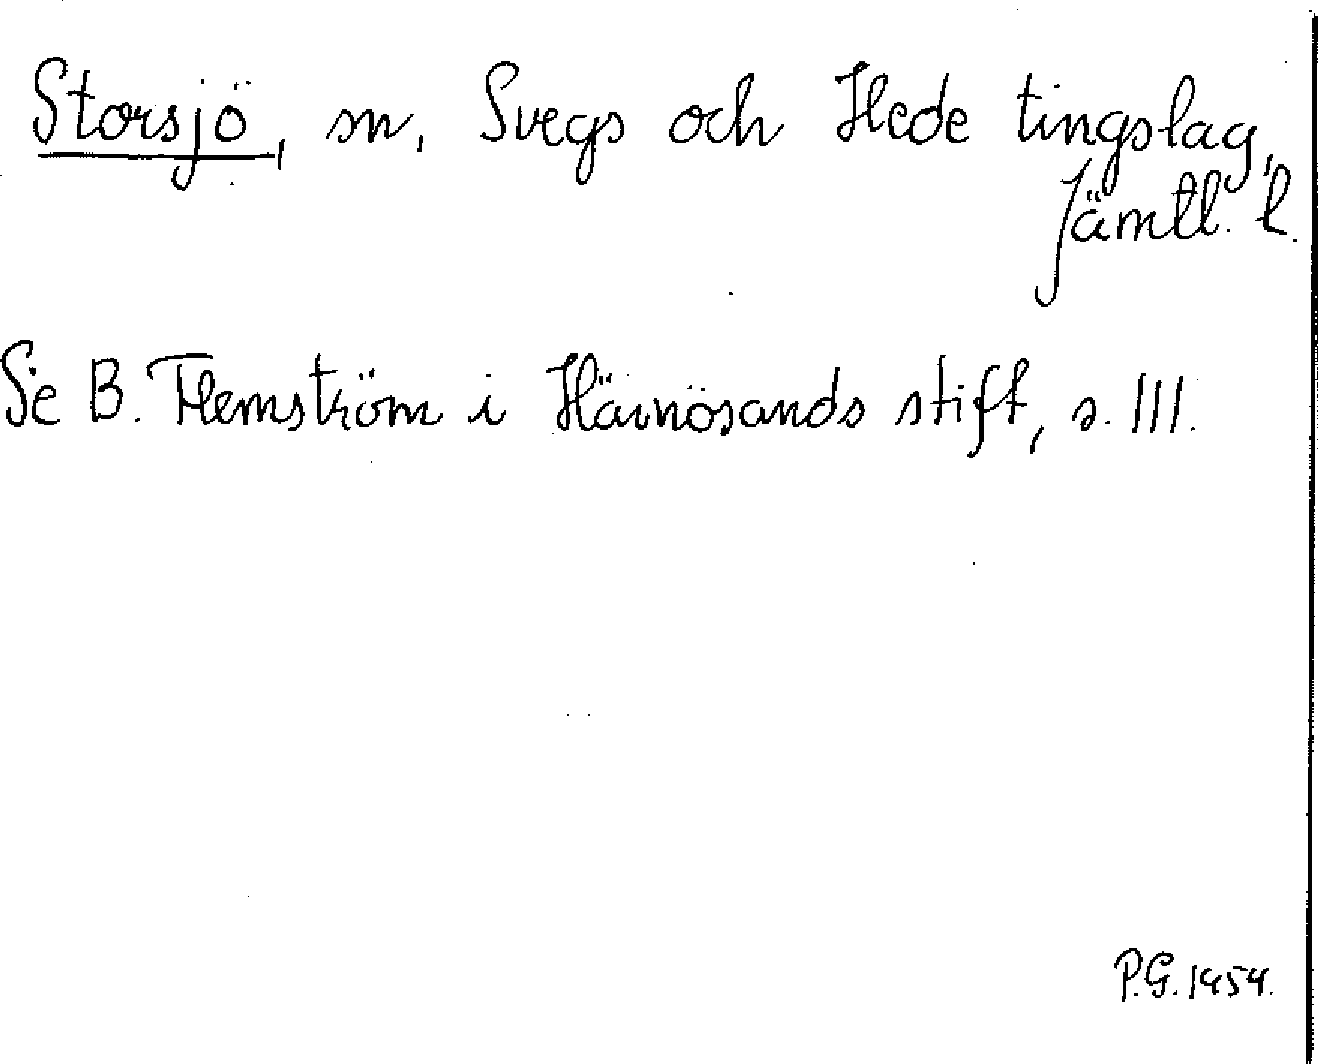 Storsjö, sn, Svegs och Hede tingslag,
Jämtl. l.
Se B. Flemström i Härnösands stift, s. 111.
P.G. 1954.